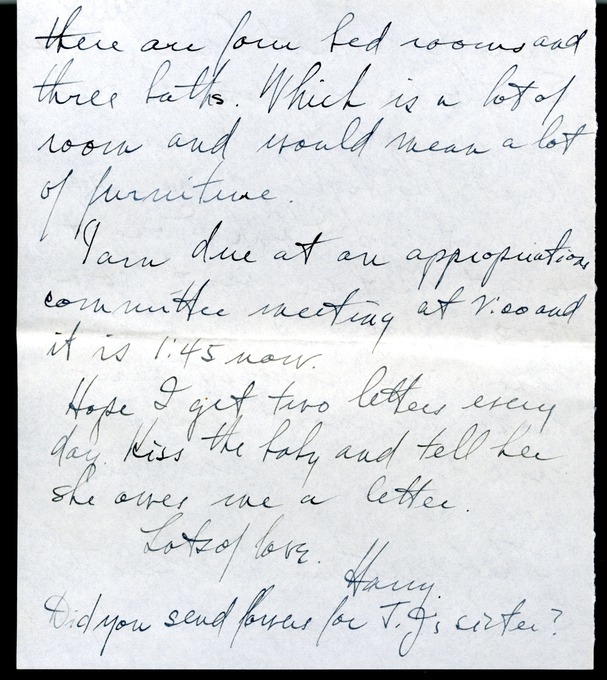 there are four bed rooms and
three baths. Which is a lot of
room and would mean a lot
of furniture.
I am due at an appropriations
committee meeting at 2:00 and
it is 1:45 now.
Hope I get two letters every
day. Kiss the baby and tell her
she owes me a letter.
Lots of love.
Harry.
Did you send flowers for T.J's sister?